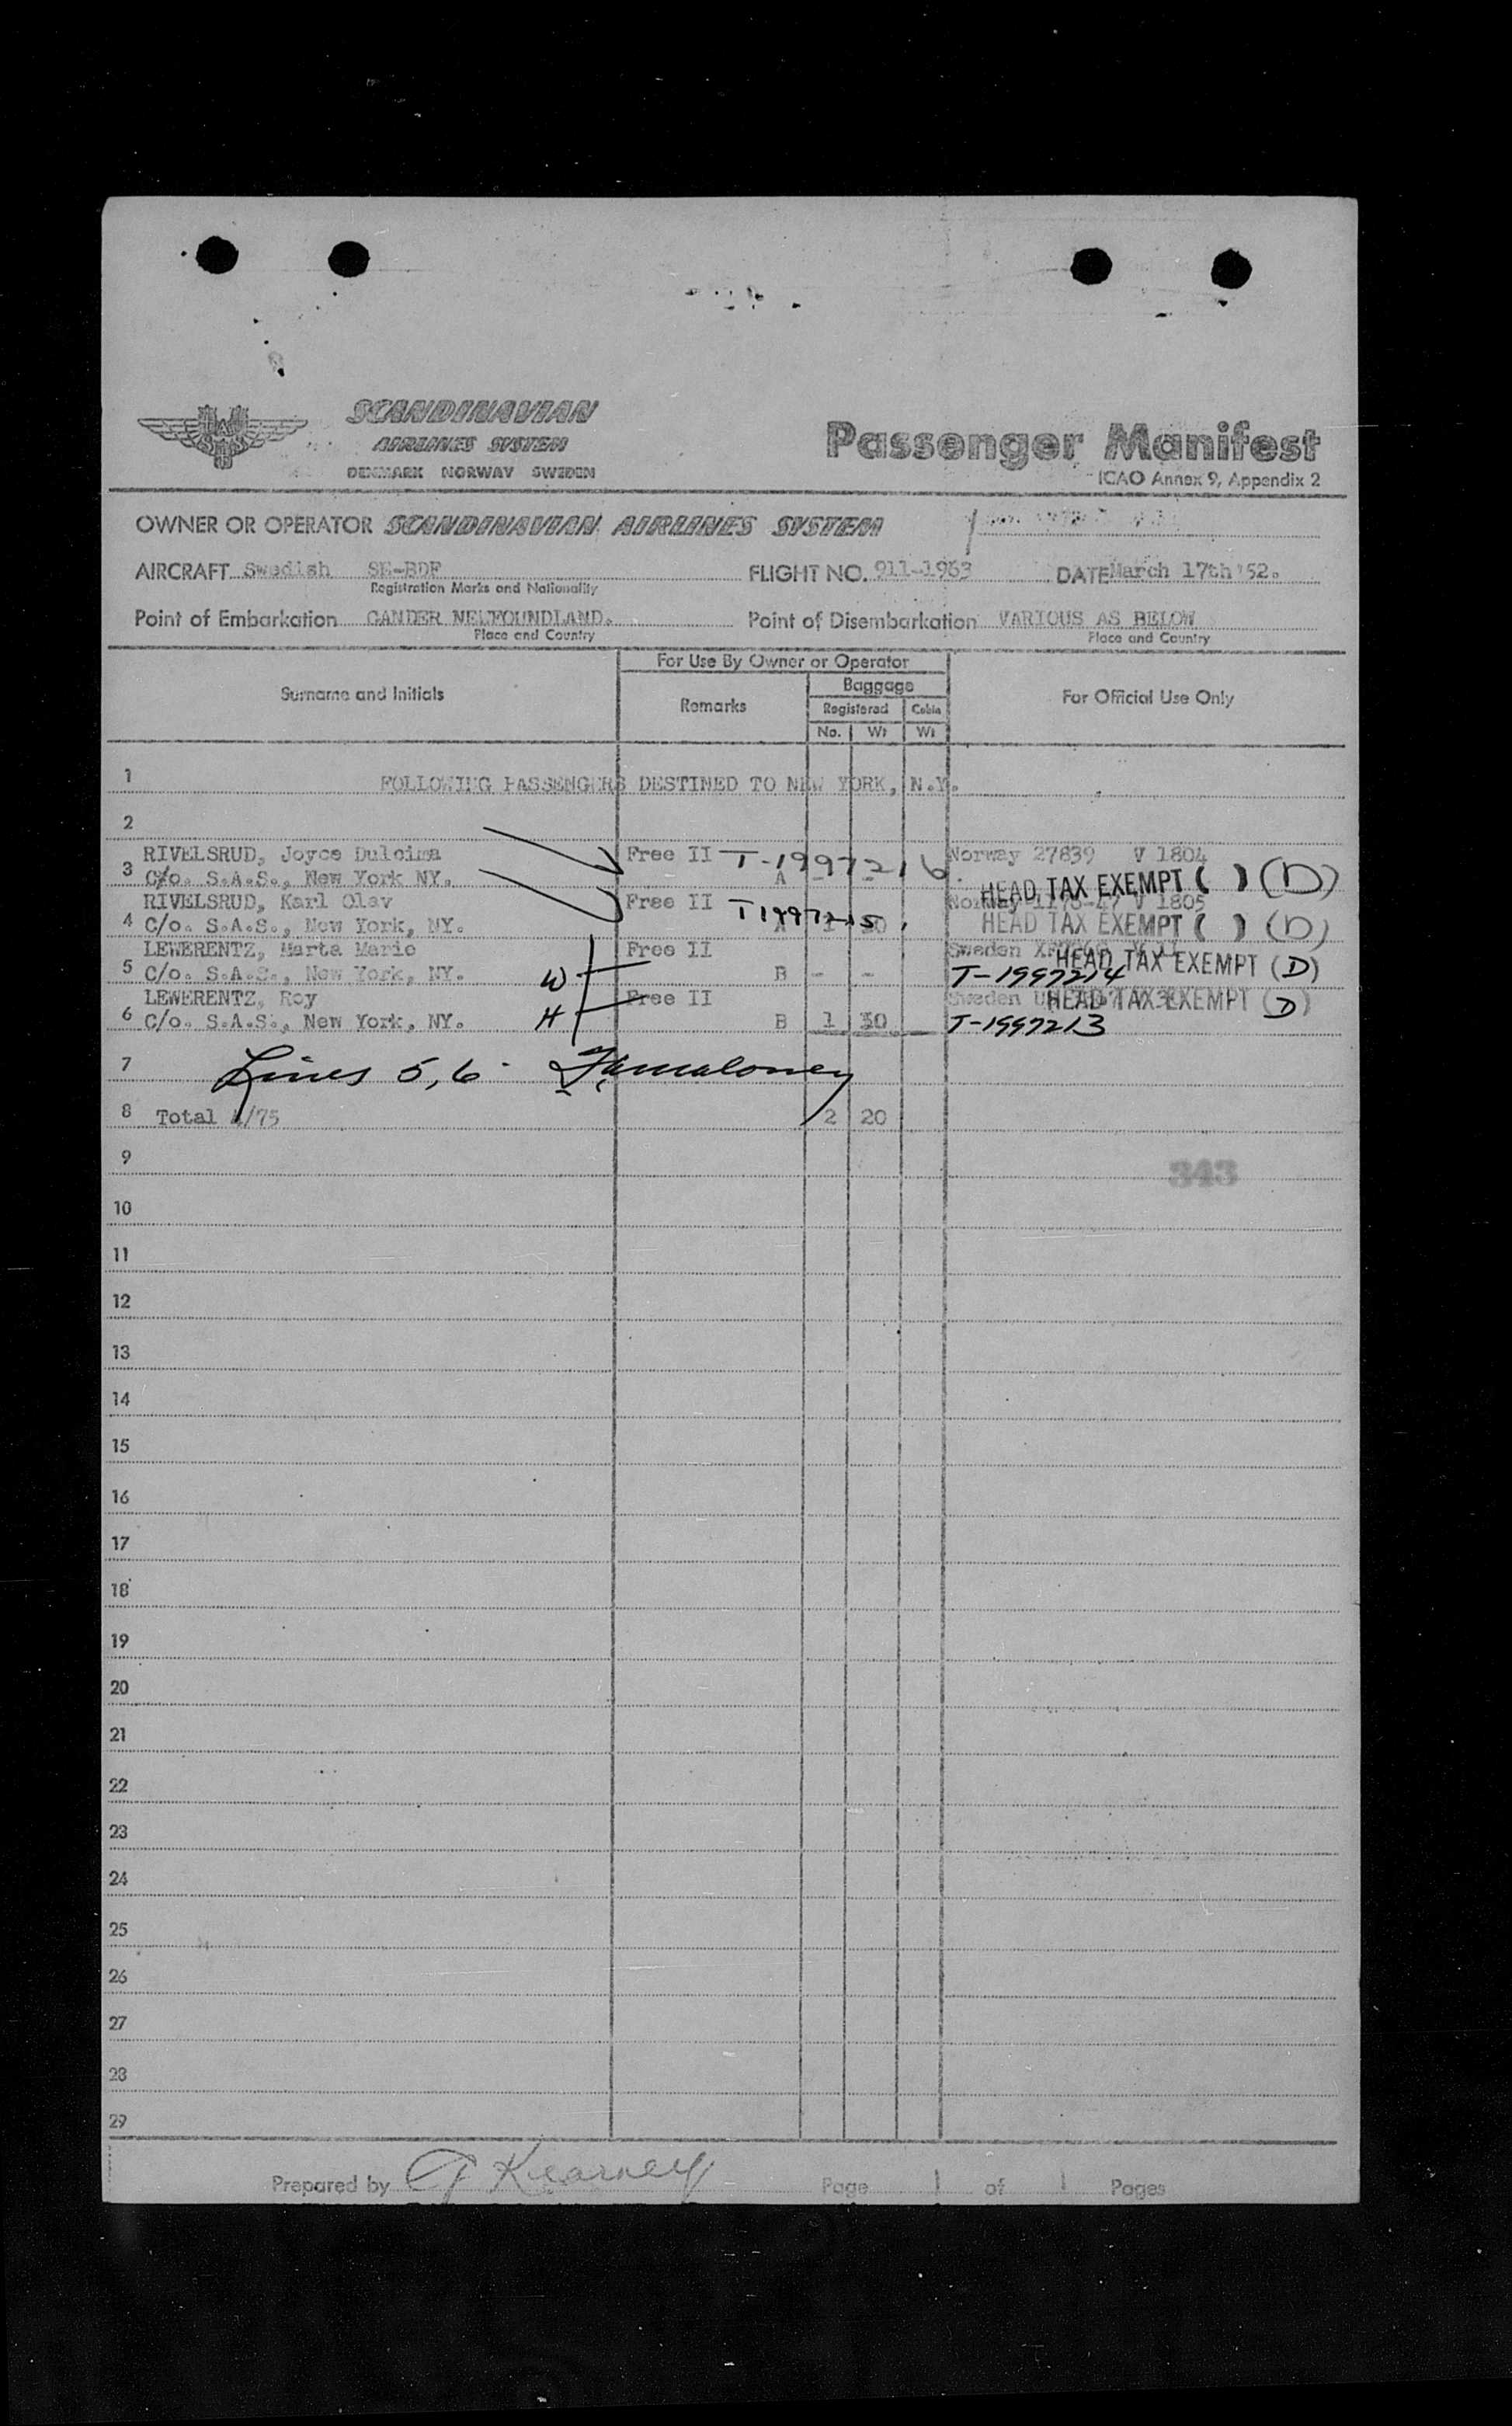 SCANDINAVIAN
AIRLINES SYSTEM
DENMARK NORWAY SWEDEN
Passenger Manifest
ICAO Annex 9, Appendix 2
OWNER OR OPERATOR SCANDINAVIAN AIRLINES SYSTEM
AIRCRAFT Swedish SE-BDF FLIGHT NO. 911-1963 DATE March 17th '52.
Registration Marks and Nationality
Point of Embarkation GANDER NEWFOUNDLAND. Point of Disembarkation VARIOUS AS BELOW
Place and Country Place and Country
For Use By Owner or Operator
Surname and Initials Remarks Baggage For Official Use Only
Registered Cabin
No. Wt Wt
1 FOLLOWING PASSENGERS DESTINED TO NEW YORK, N.Y.
2
RIVELSRUD, Joyce Dulcima Free II T-1997216. Norway 27839 V 1804
3 C/o. S.A.S., New York NY. A - - HEAD TAX EXEMPT ( ) (D)
RIVELSRUD, Karl Olav Free II T1997215 V 1805
4 C/o. S.A.S., New York, NY. A 1 HEAD TAX EXEMPT ( ) (D)
LEWERENTZ, Marta Marie Free II Sweden HEAD TAX EXEMPT (D)
5 C/o. S.A.S., New York, NY. W B - - T-1997214
LEWERENTZ, Roy Free II Sweden HEAD TAX EXEMPT (D)
6 C/o. S.A.S., New York, NY. H B 1 30 T-1997213
7 Lines 5, 6
8 Total 4/75 2 20
9
343
10
11
12
13
14
15
16
17
18
19
20
21
22
23
24
25
26
27
28
29
Prepared by Kearney Page 1 of 1 Pages